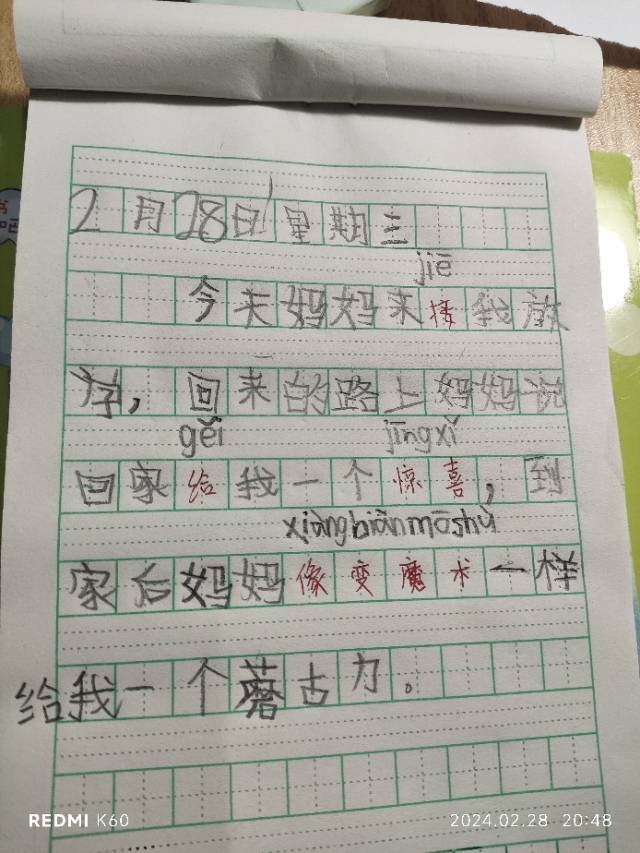 2月28日星期三
jiē
今天妈妈来接我放
学，回来的路上妈妈说
gěi jīngxǐ
回家给我一个惊喜，到
xiàngbiànmóshù
家后妈妈像变魔术一样
给我一个蘑古力。
REDMI K60
2024.02.28 20:48